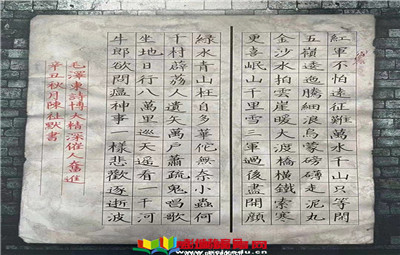 紅軍不怕遠征難萬水千山只等閑
五嶺逶迤騰細浪烏蒙磅礴走泥丸
金沙水拍雲崖暖大渡橋橫鐵索寒
更喜岷山千里雪三軍過後盡開顏
綠水青山枉自多華佗無奈小蟲何
千村薜荔人遺矢萬戶蕭疏鬼唱歌
坐地日行八萬里巡天遙看一千河
牛郎欲問瘟神事一樣悲歡逐逝波
毛澤東詩博大精深催人奮進
辛丑秋月陳社默書